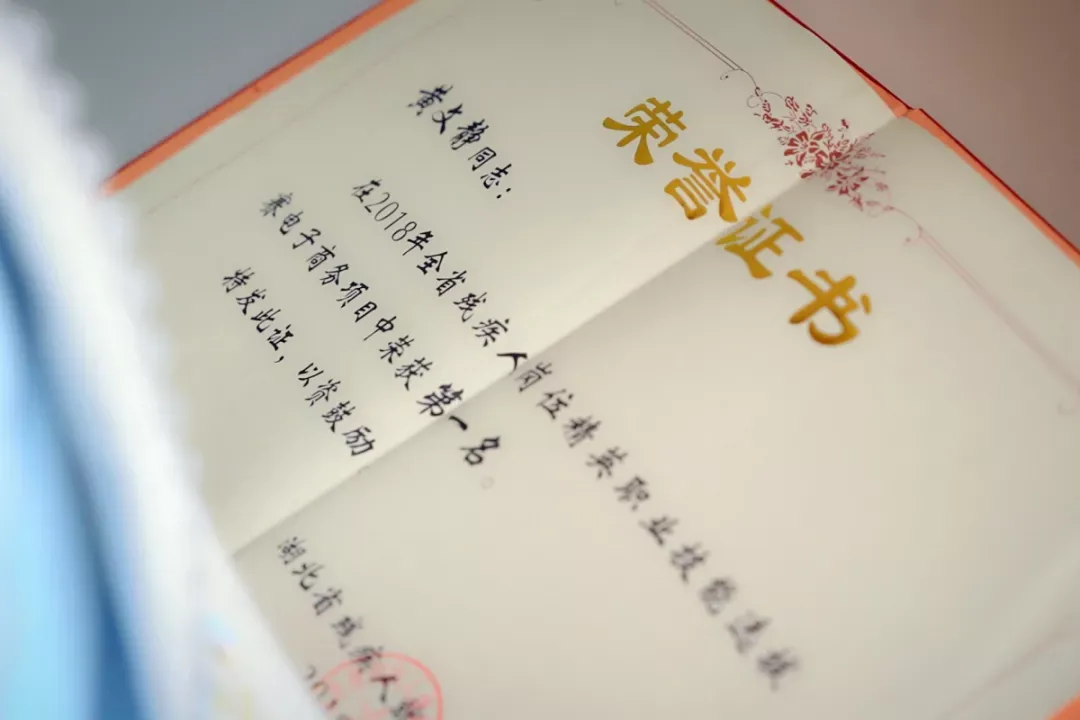 荣誉证书
黄文静同志：
在2018年全省残疾人岗位精英职业技能选拔
赛电子商务项目中荣获第一名。
特发此证，以资鼓励
湖北省残疾人
201